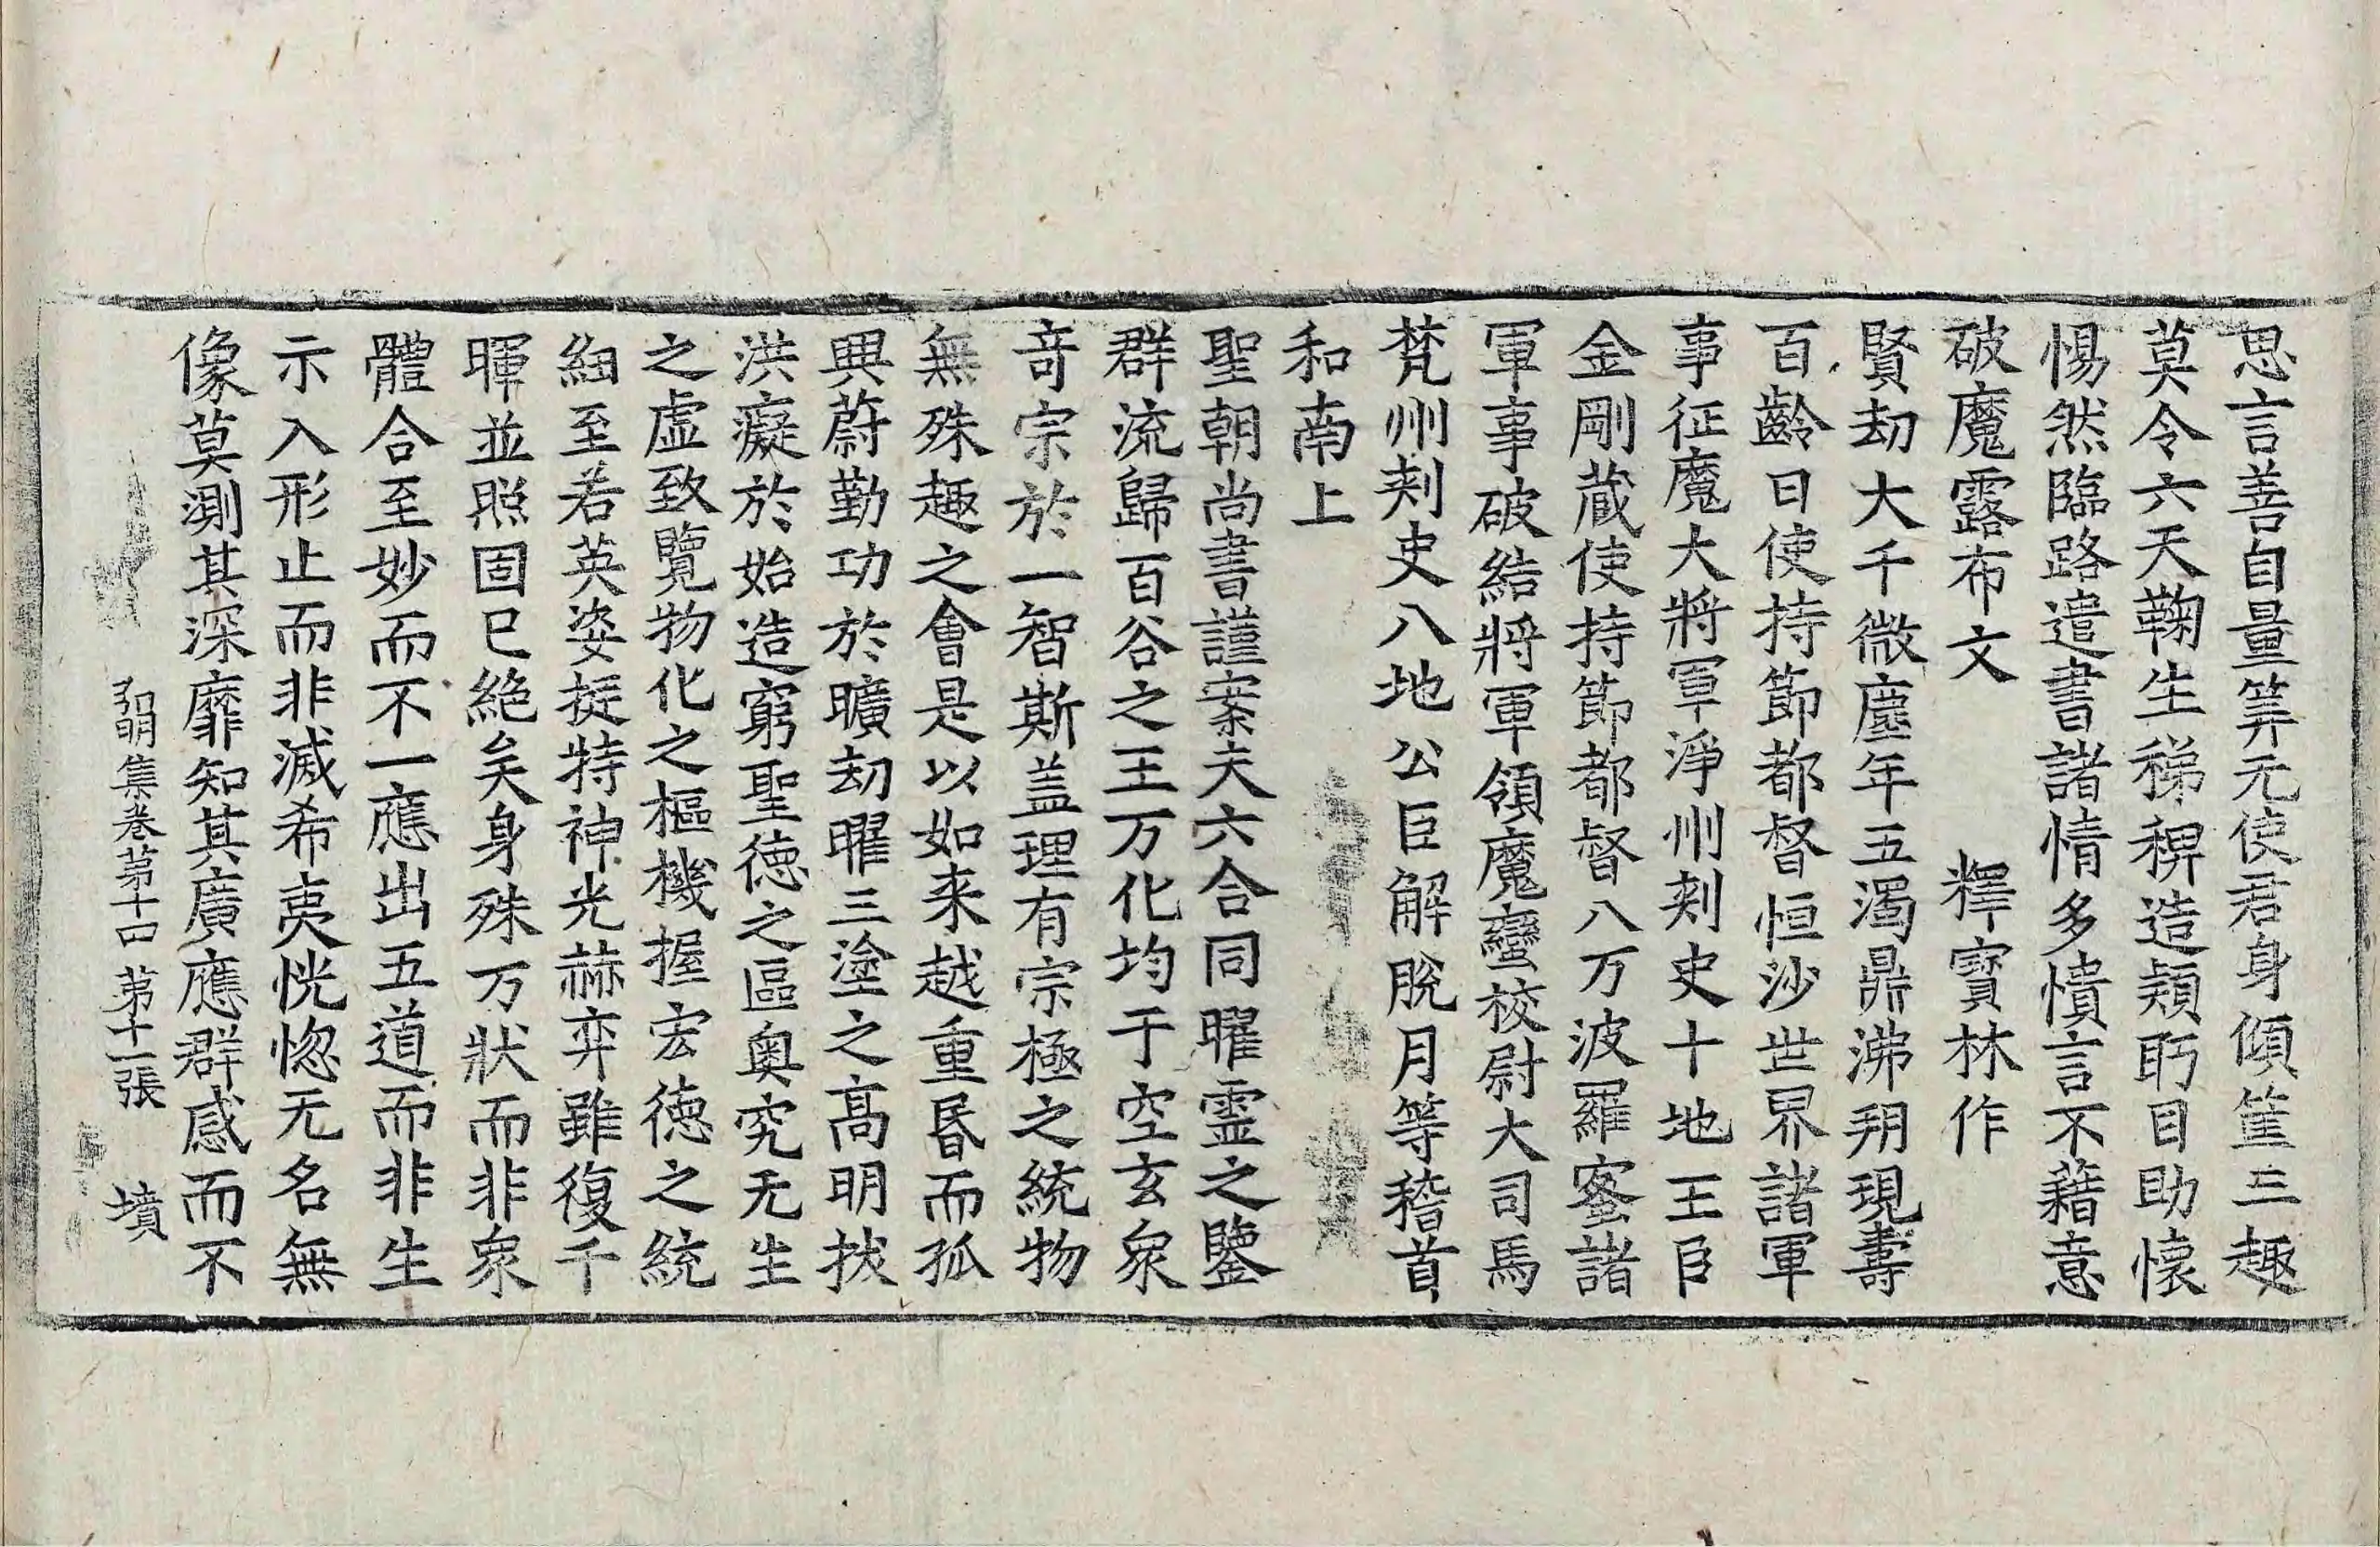 思言善自量筭无使君身傾筐三趣
莫令六天鞠生稊稗造穎眄目助懷
惕然臨路遣書諸情多憒言不藉意
破魔露布文　釋寶林作
賢劫大千微塵年五濁鼎沸朔現壽
百齡日使持節都督恒沙世界諸軍
事征魔大將軍淨州刾史十地王臣
金剛蔵使持節都督八万波羅蜜諸
軍事破結將軍領魔蠻校尉大司馬
梵州刾史八地公臣解脫月等稽首
和南上
聖朝尚書謹案夫六合同曜霊之鑒
群流歸百谷之王万化均于空玄衆
竒宗於一智斯盖理有宗極之統物
無殊趣之會是以如来越重昬而孤
興蔚勤功於曠劫曜三塗之髙明拔
洪癡於始造窮聖徳之區奧究无生
之虛致覽物化之樞機握宏徳之統
細至若英姿挺特神光赫弈雖復千
暉並照固已絶矣身殊万狀而非衆
體合至妙而不一應出五道而非生
示入形止而非滅希夷恍惚无名無
像莫測其深靡知其廣應群感而不
弘明集卷苐十四　苐十一張　墳